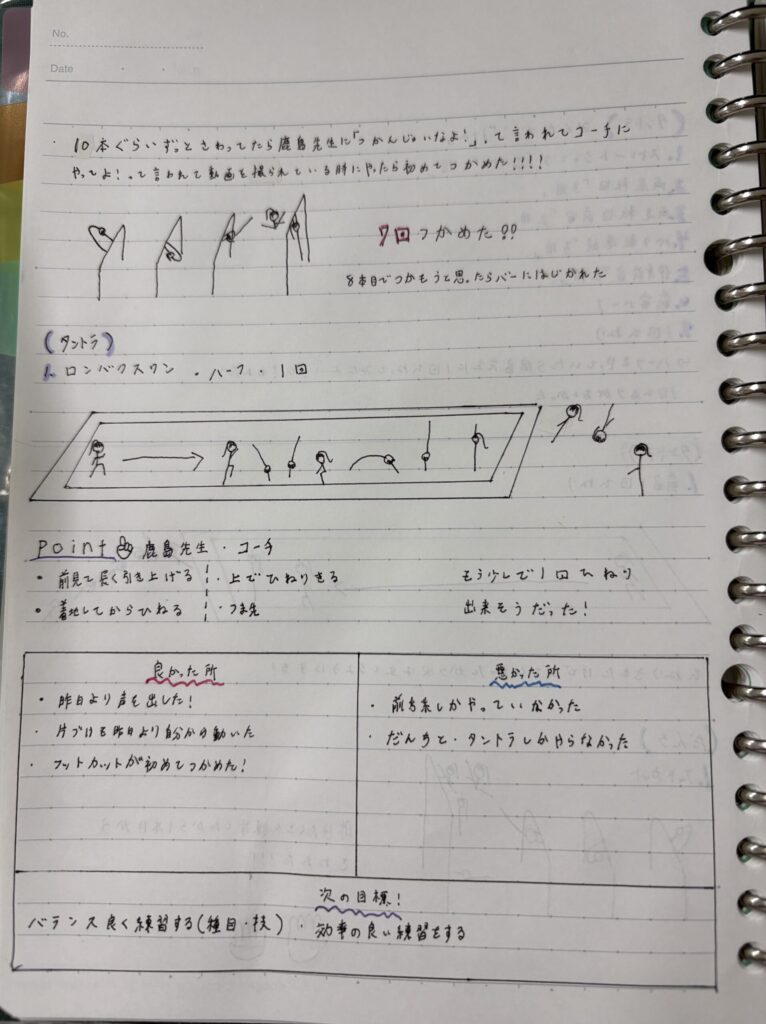 No.
Date
・10本ぐらいずっとさわってたら鹿島先生に「つかんじゃいなよ！」って言われてコーチに
やってよ！って言われて動画を撮られている時にやったら初めてつかめた!!!!
7回つかめた!!
8本目でつかもうと思ったらバーにはじかれた
(タントラ)
1. ロンバクスワン ・ハーフ・1回
Point 鹿島先生・コーチ
・前見て長く引き上げる ・上でひねりきる もう少しで1回ひねり
・着地してからひねる ・つま先 出来そうだった！
良かった所
・昨日より声を出した！
・片づけも昨日より自分から動いた
・フットカットが初めてつかめた！
悪かった所
・前方系しかやっていなかった
・だんちと・タントラしかやらなかった
次の目標！
バランス良く練習する(種目・技) ・効率の良い練習をする